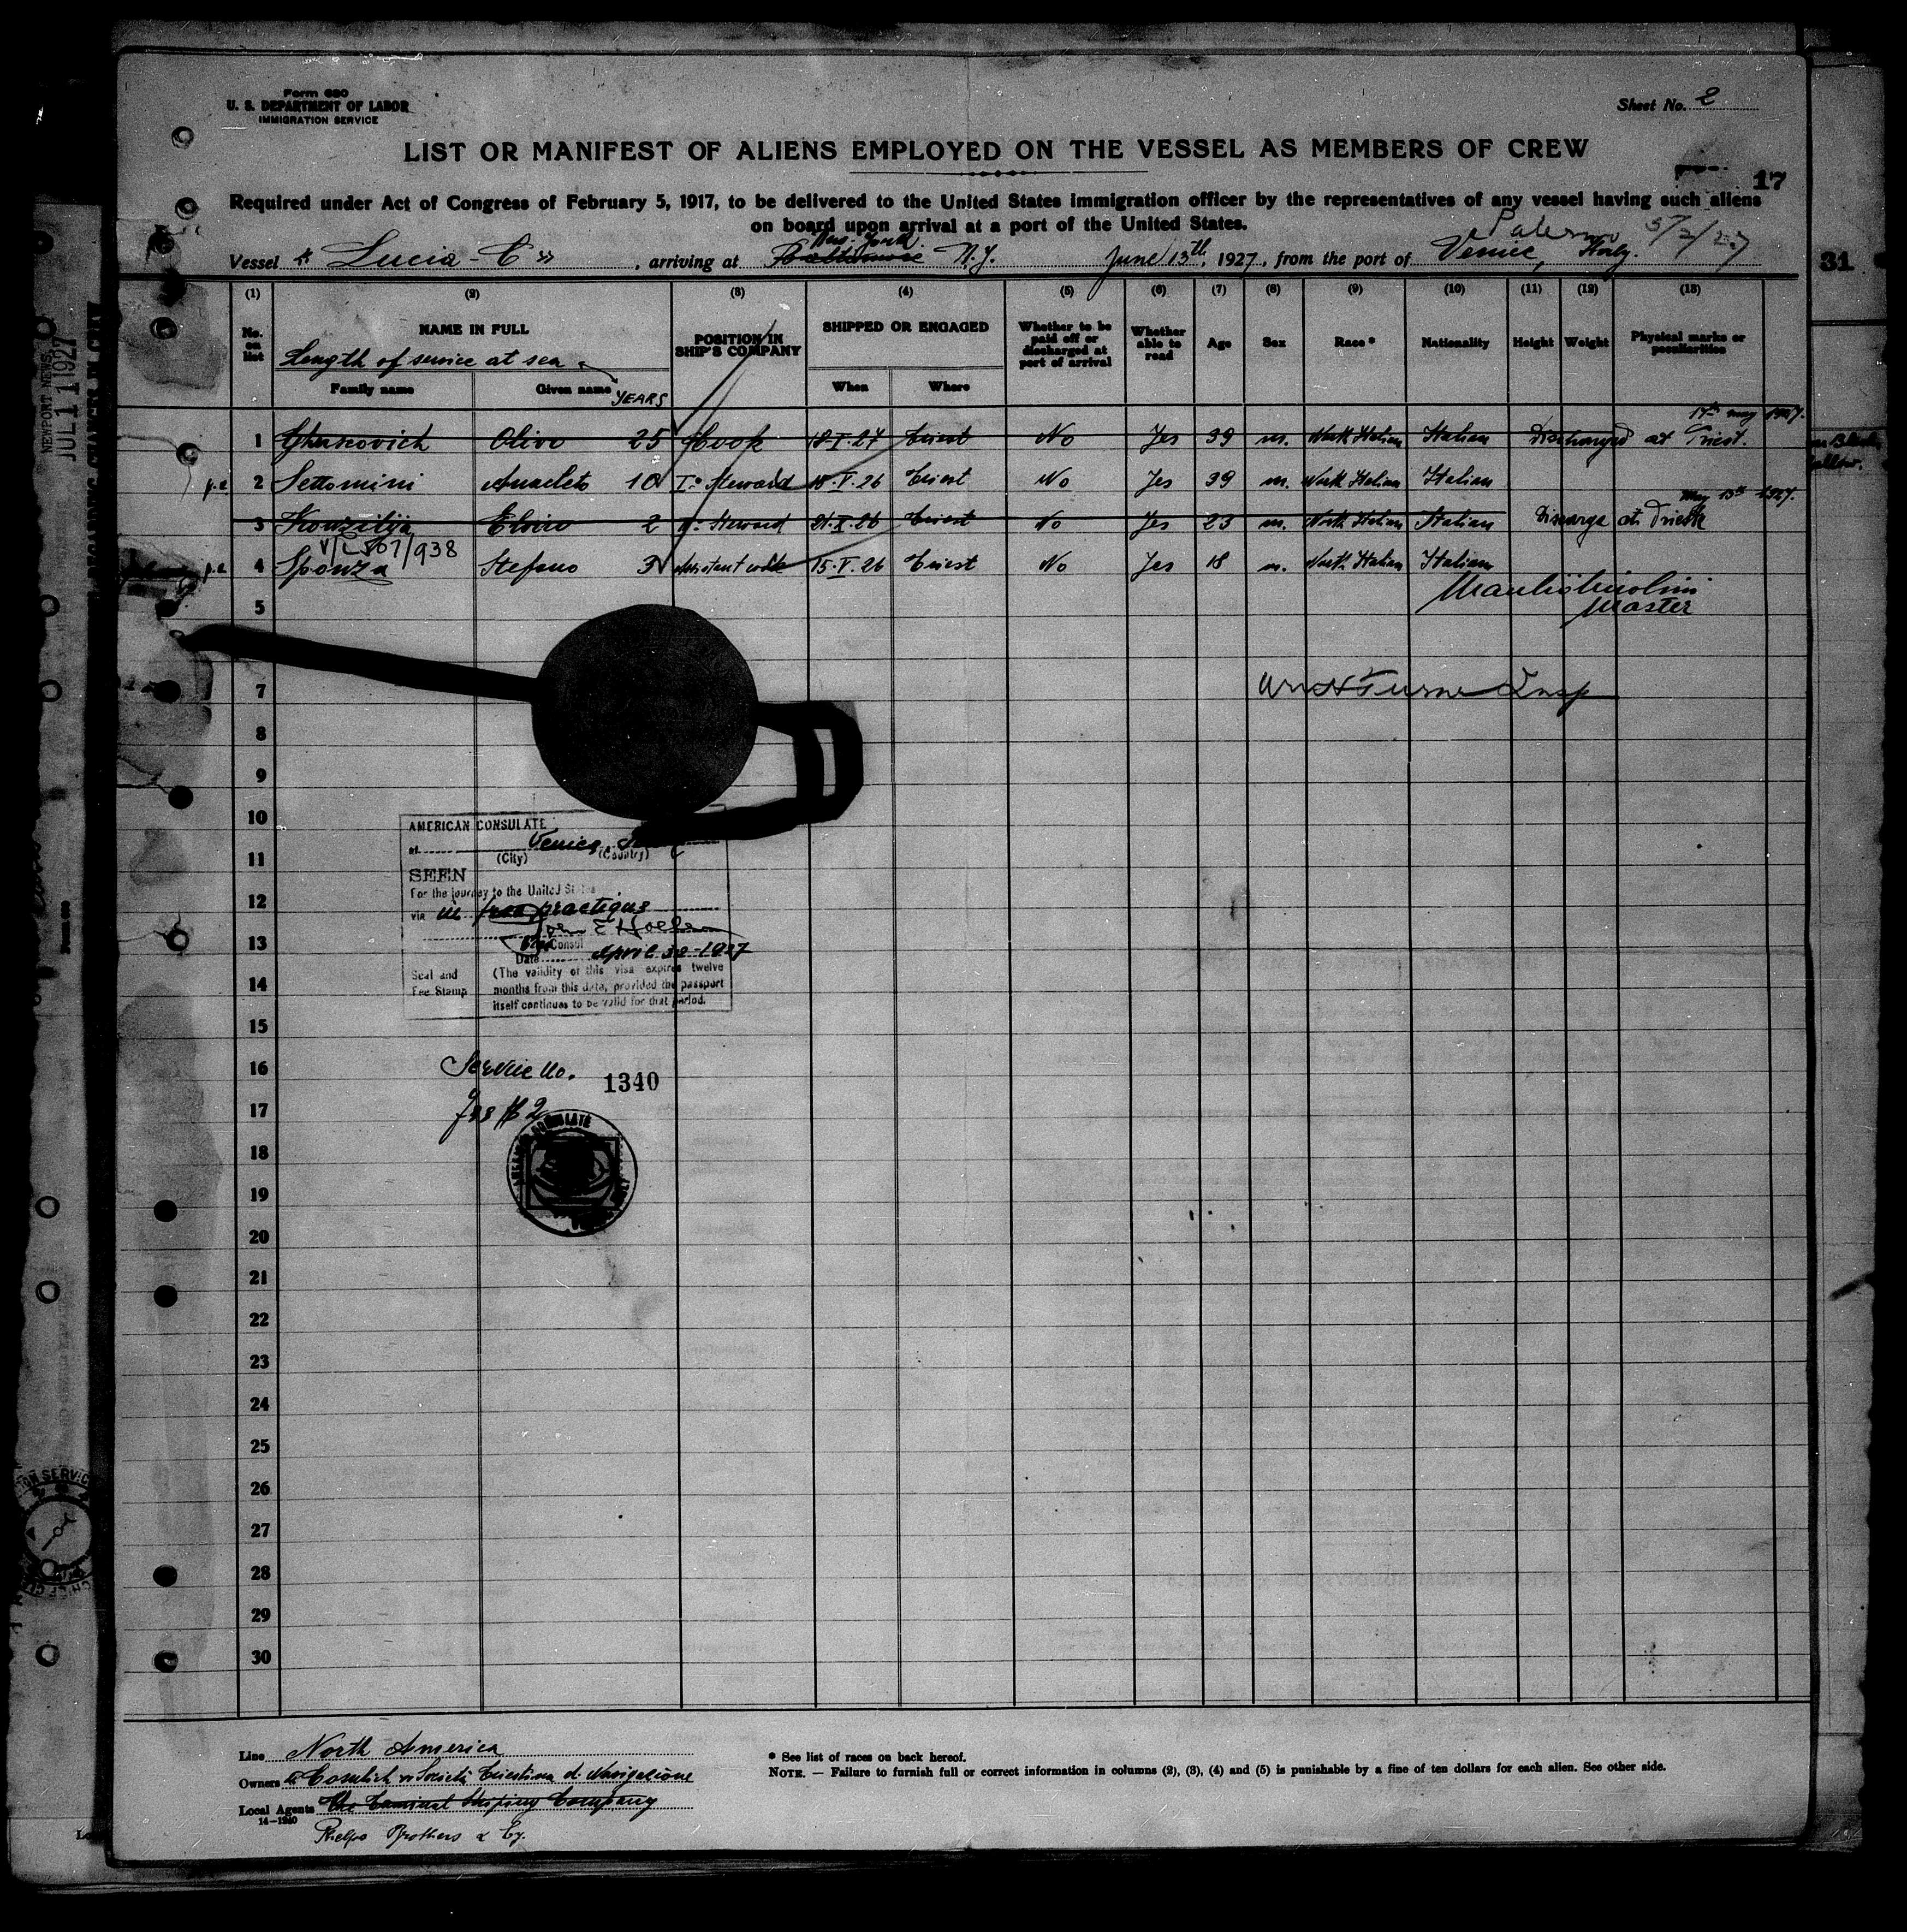 Form 680
U. S. DEPARTMENT OF LABOR
IMMIGRATION SERVICE
Sheet No. 2
LIST OR MANIFEST OF ALIENS EMPLOYED ON THE VESSEL AS MEMBERS OF CREW
17
Required under Act of Congress of February 5, 1917, to be delivered to the United States immigration officer by the representatives of any vessel having such aliens
on board upon arrival at a port of the United States.
New York Palermo 5/2/27
Vessel "Lucia-C", arriving at Baltimore N.Y. June 13th, 1927, from the port of Venice, Italy.
31
NEWPORT NEWS
JUL 11 1927
(1) (2) (3) (4) (5) (6) (7) (8) (9) (10) (11) (12) (13)
No. on list NAME IN FULL POSITION IN SHIP'S COMPANY SHIPPED OR ENGAGED Whether to be paid off or discharged at port of arrival Whether able to read Age Sex Race* Nationality Height Weight Physical marks or peculiarities
Length of service at sea
Family name Given name YEARS When Where
17th may 1927.
1 Olivo 25 Cook 18-I-27 Triest No Yes 39 m. North Italian Italian Discharged at Triest.
p.e 2 Settomini Anacleto 10 I° Steward 15-V-26 Triest No Yes 39 m. North Italian Italian
May 13th 1927.
3 Elviro 2 Steward 21-X-26 Triest No Yes 23 m. North Italian Italian Discarge at Triest
507/938
p.e 4 Sponza Stefano 3 Assistant cook 15-V-26 Triest No Yes 18 m. North Italian Italian
Master
5
7
8
9
10
11
12
13
14
15
16
17
18
19
20
21
22
23
24
25
26
27
28
29
30
AMERICAN CONSULATE
at Venice, Italy
(City) (Country)
SEEN
For the journey to the United States
via in free pratique
Vice Consul
Date April 30-1927
Seal and Fee Stamp
(The validity of this visa expires twelve
months from this date, provided the passport
itself continues to be valid for that period.
Service No. 1340
Fee $2
AMERICAN CONSULATE
Line North America
Owners Cosulich Società Triestina di Navigazione
Local Agents The Terminal Shipping Company
14-1240
Phelps Brothers & Cy.
* See list of races on back hereof.
NOTE. — Failure to furnish full or correct information in columns (2), (3), (4) and (5) is punishable by a fine of ten dollars for each alien. See other side.